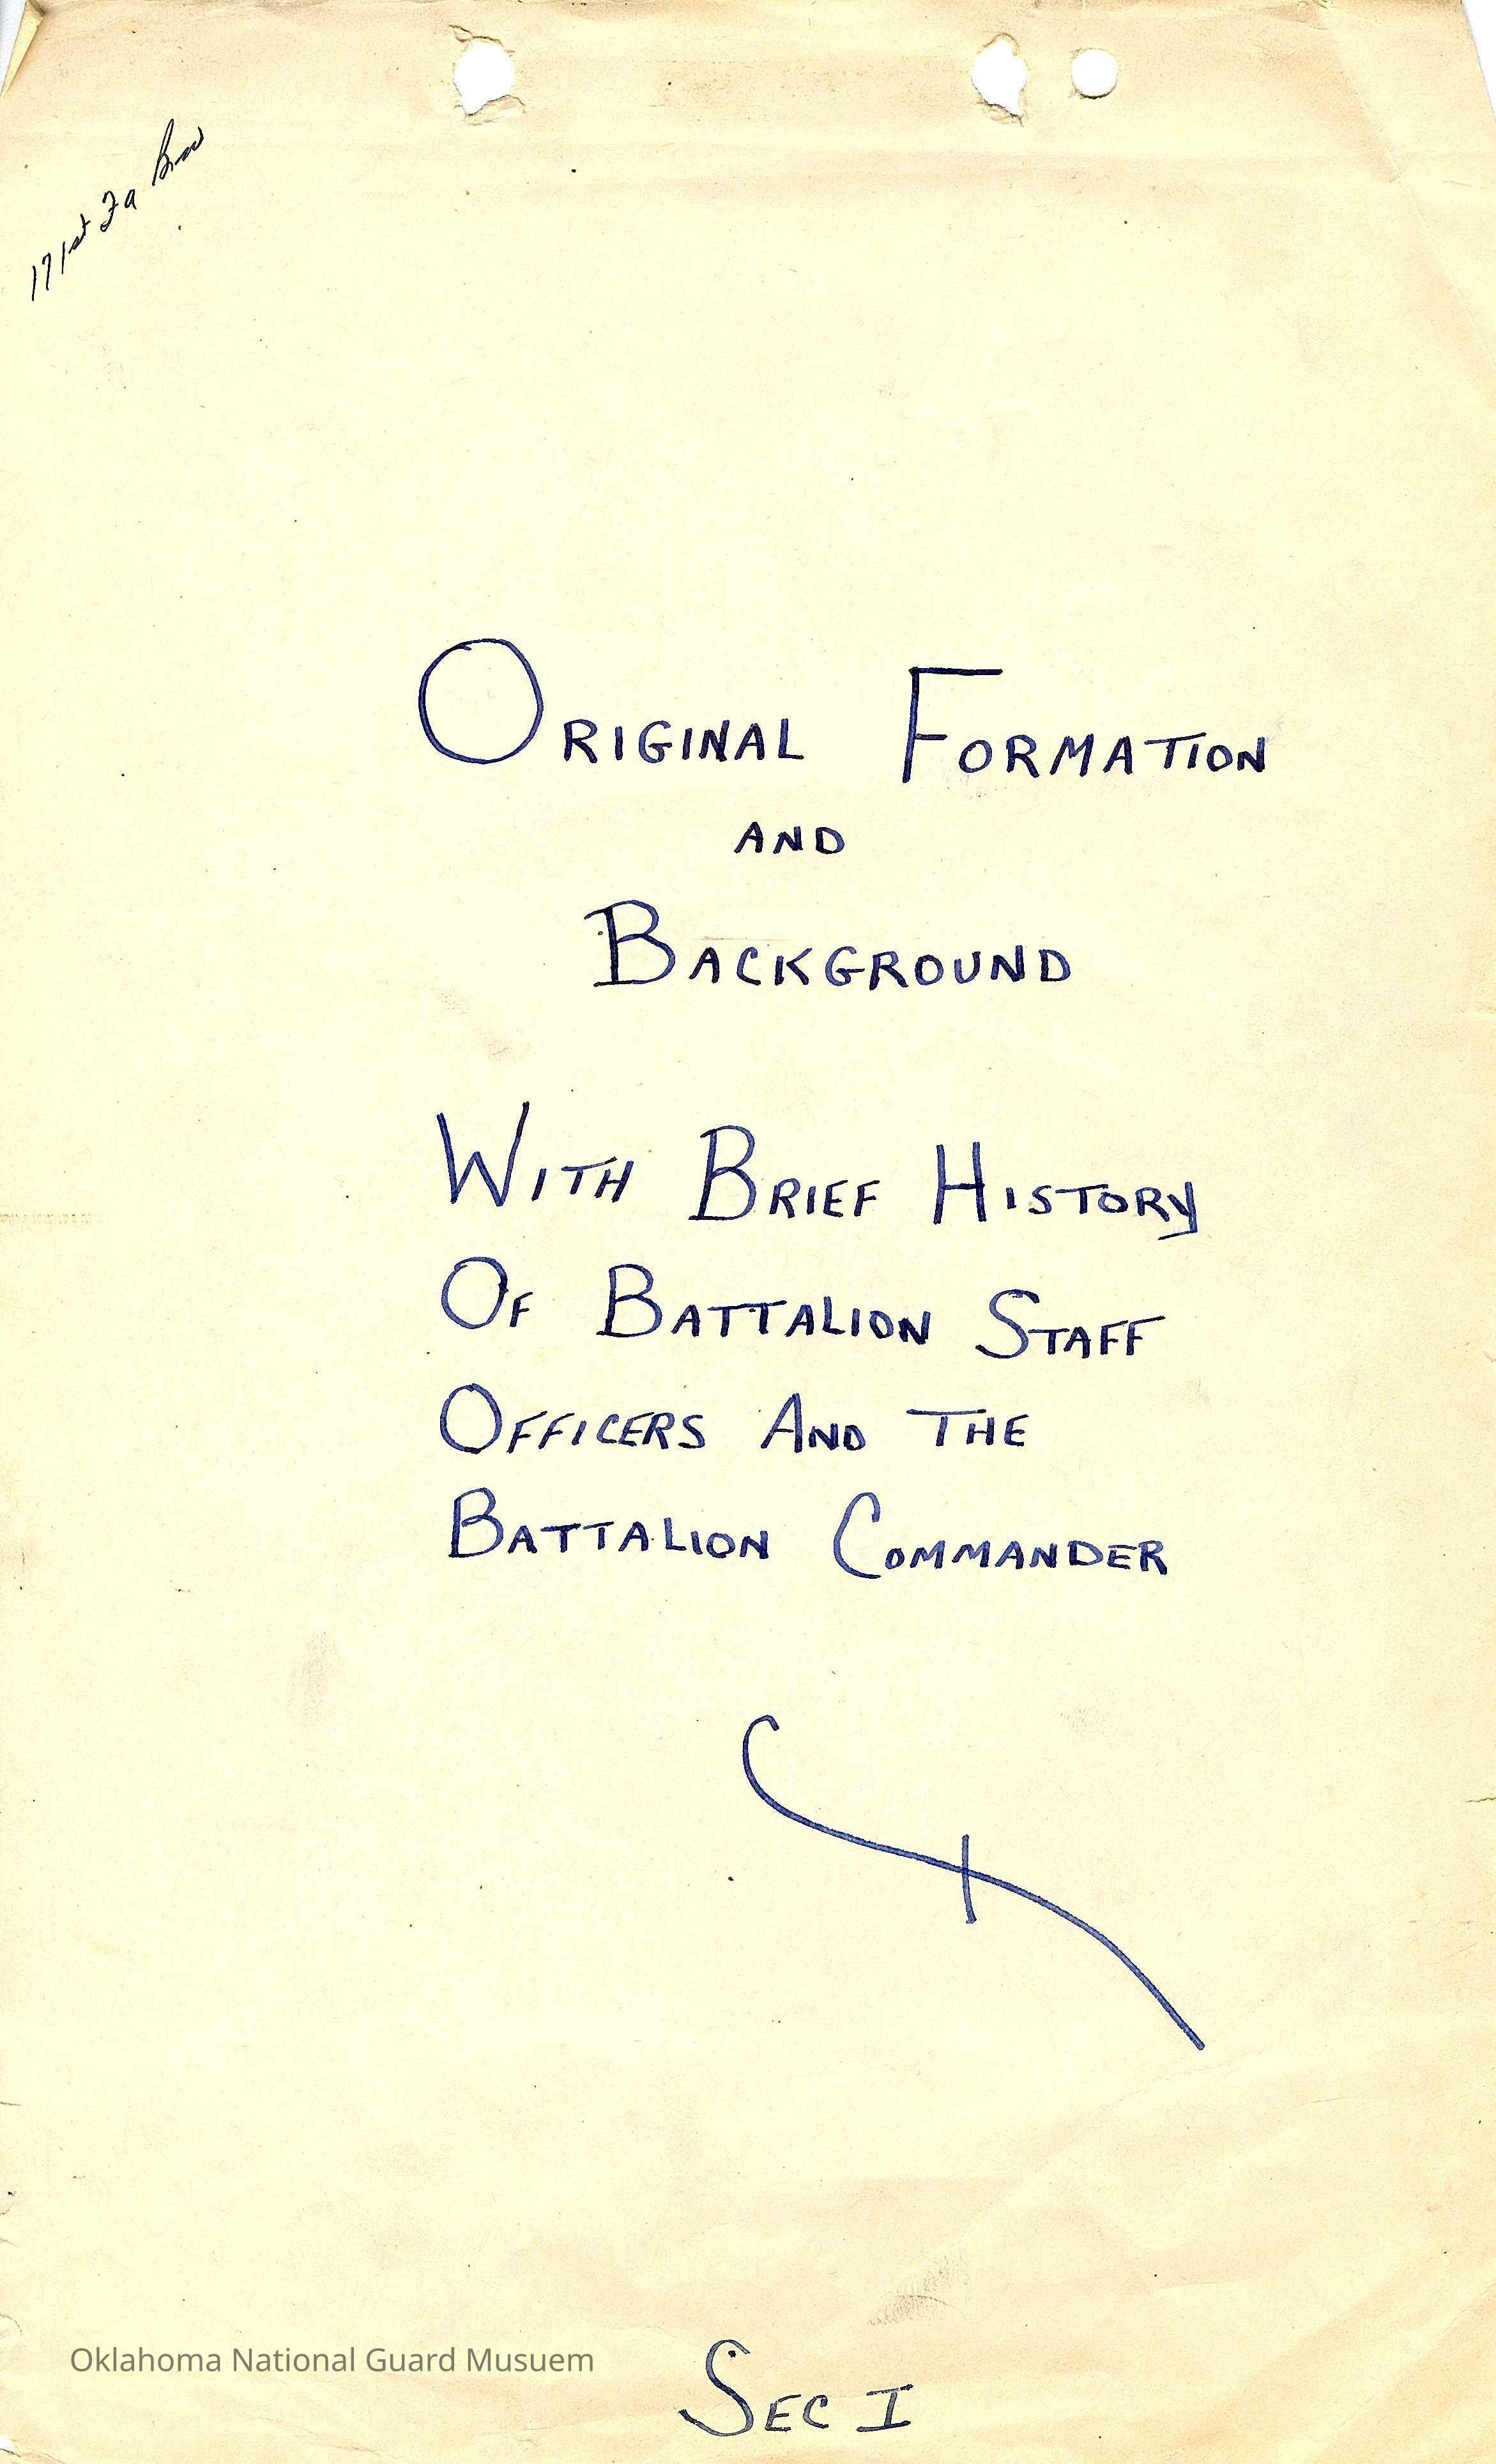 171st Fa Bn
ORIGINAL FORMATION
AND
BACKGROUND
WITH BRIEF HISTORY
OF BATTALION STAFF
OFFICERS AND THE
BATTALION COMMANDER
Oklahoma National Guard Musuem
SEC I